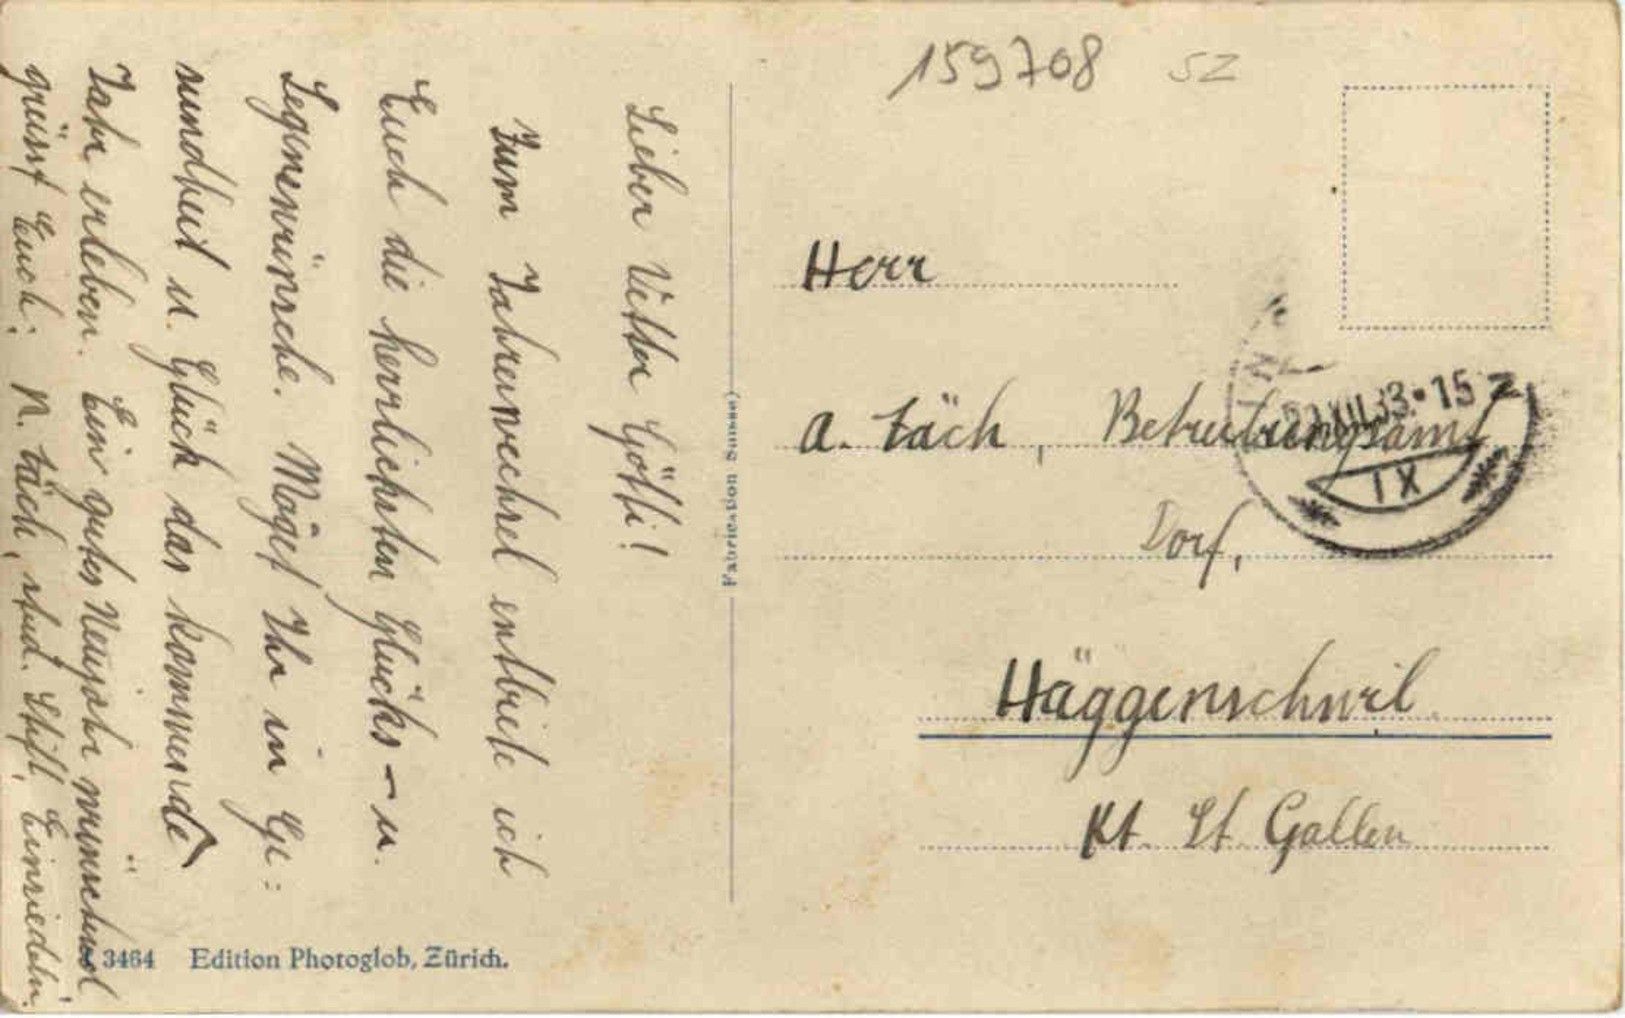 159708 SZ
Lieber Vetter Götti!
Zum Jahreswechsel entbiete ich
Euch die herrlichsten Glücks- u.
Segenswünsche. Möget Ihr in Ge:
sundheit u. Glück das kommende
Jahr erleben. Ein gutes Neujahr wünschend
grüsst Euch: N. Täch, stud. Stift, Einsiedeln.
Herr
A. Täch, Betreibungsamt
Dorf,
Häggenschwil
Kt. St. Gallen
XII.33-15
IX
3464 Edition Photoglob, Zürich.